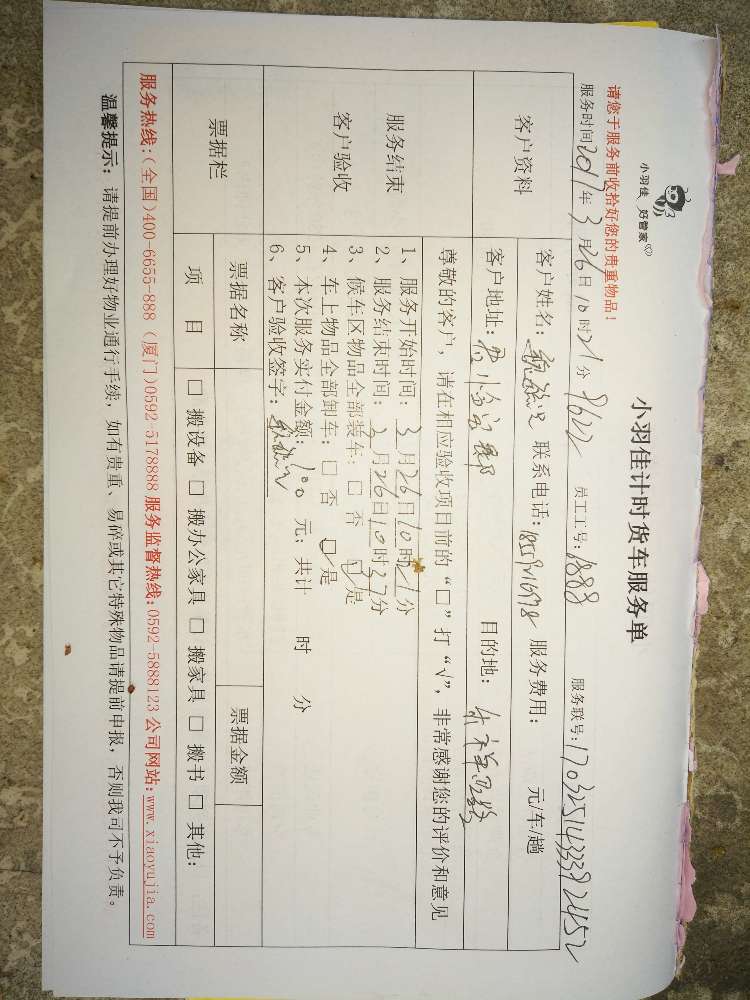 小羽佳 好管家
小羽佳计时货车服务单
请您于服务前收拾好您的贵重物品!
服务时间2017年3月26日10时21分 8622 员工工号:1888 服务联号:1703251433392452
客户资料
客户姓名: 联系电话: 服务费用: 元/车/趟
客户地址: 目的地:
尊敬的客户,请在相应验收项目前的“□”打“√”,非常感谢您的评价和意见
服务结束
客户验收
1、服务开始时间:3月26日10时21分
2、服务结束时间:3月26日10时37分
3、候车区物品全部装车:□ 否 ☑ 是
4、车上物品全部卸车:□ 否 ☑ 是
5、本次服务实付金额:100 元;共计 时 分
6、客户验收签字:
票据栏
票据名称 票据金额
项 目 □ 搬设备 □ 搬办公家具 □ 搬家具 □ 搬书 □ 其他:
服务热线:(全国)400-6655-888 (厦门)0592-5178888 服务监督热线:0592-5888123 公司网站:www.xiaoyujia.com
温馨提示:请提前办理好物业通行手续,如有贵重、易碎或其它特殊物品请提前申报,否则我司不予负责。